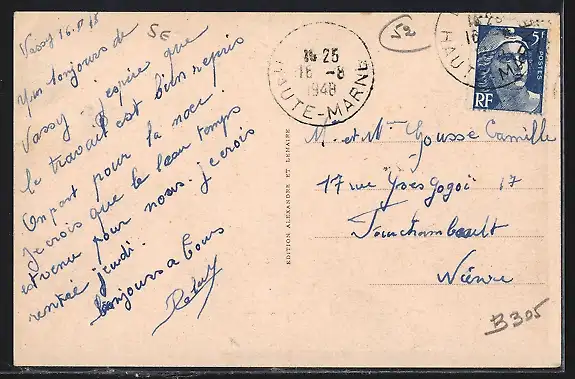 Vassy 16.8.48
bonjours de
Vassy. J'espère que
le travail est bien repris
On part pour la noce.
Je crois que le beau temps
est venu pour nous. Je crois
rentrée jeudi.
bonjours a tous
SE
V2
25
16 -8
1948
HAUTE-MARNE
16
HAUTE-M
5F
POSTES
RF
EDITION ALEXANDRE ET LEMAIRE
M. et Mme Gousse Camille
17 rue Yves Gogoi 17
Fourchambault
Nièvre
B305